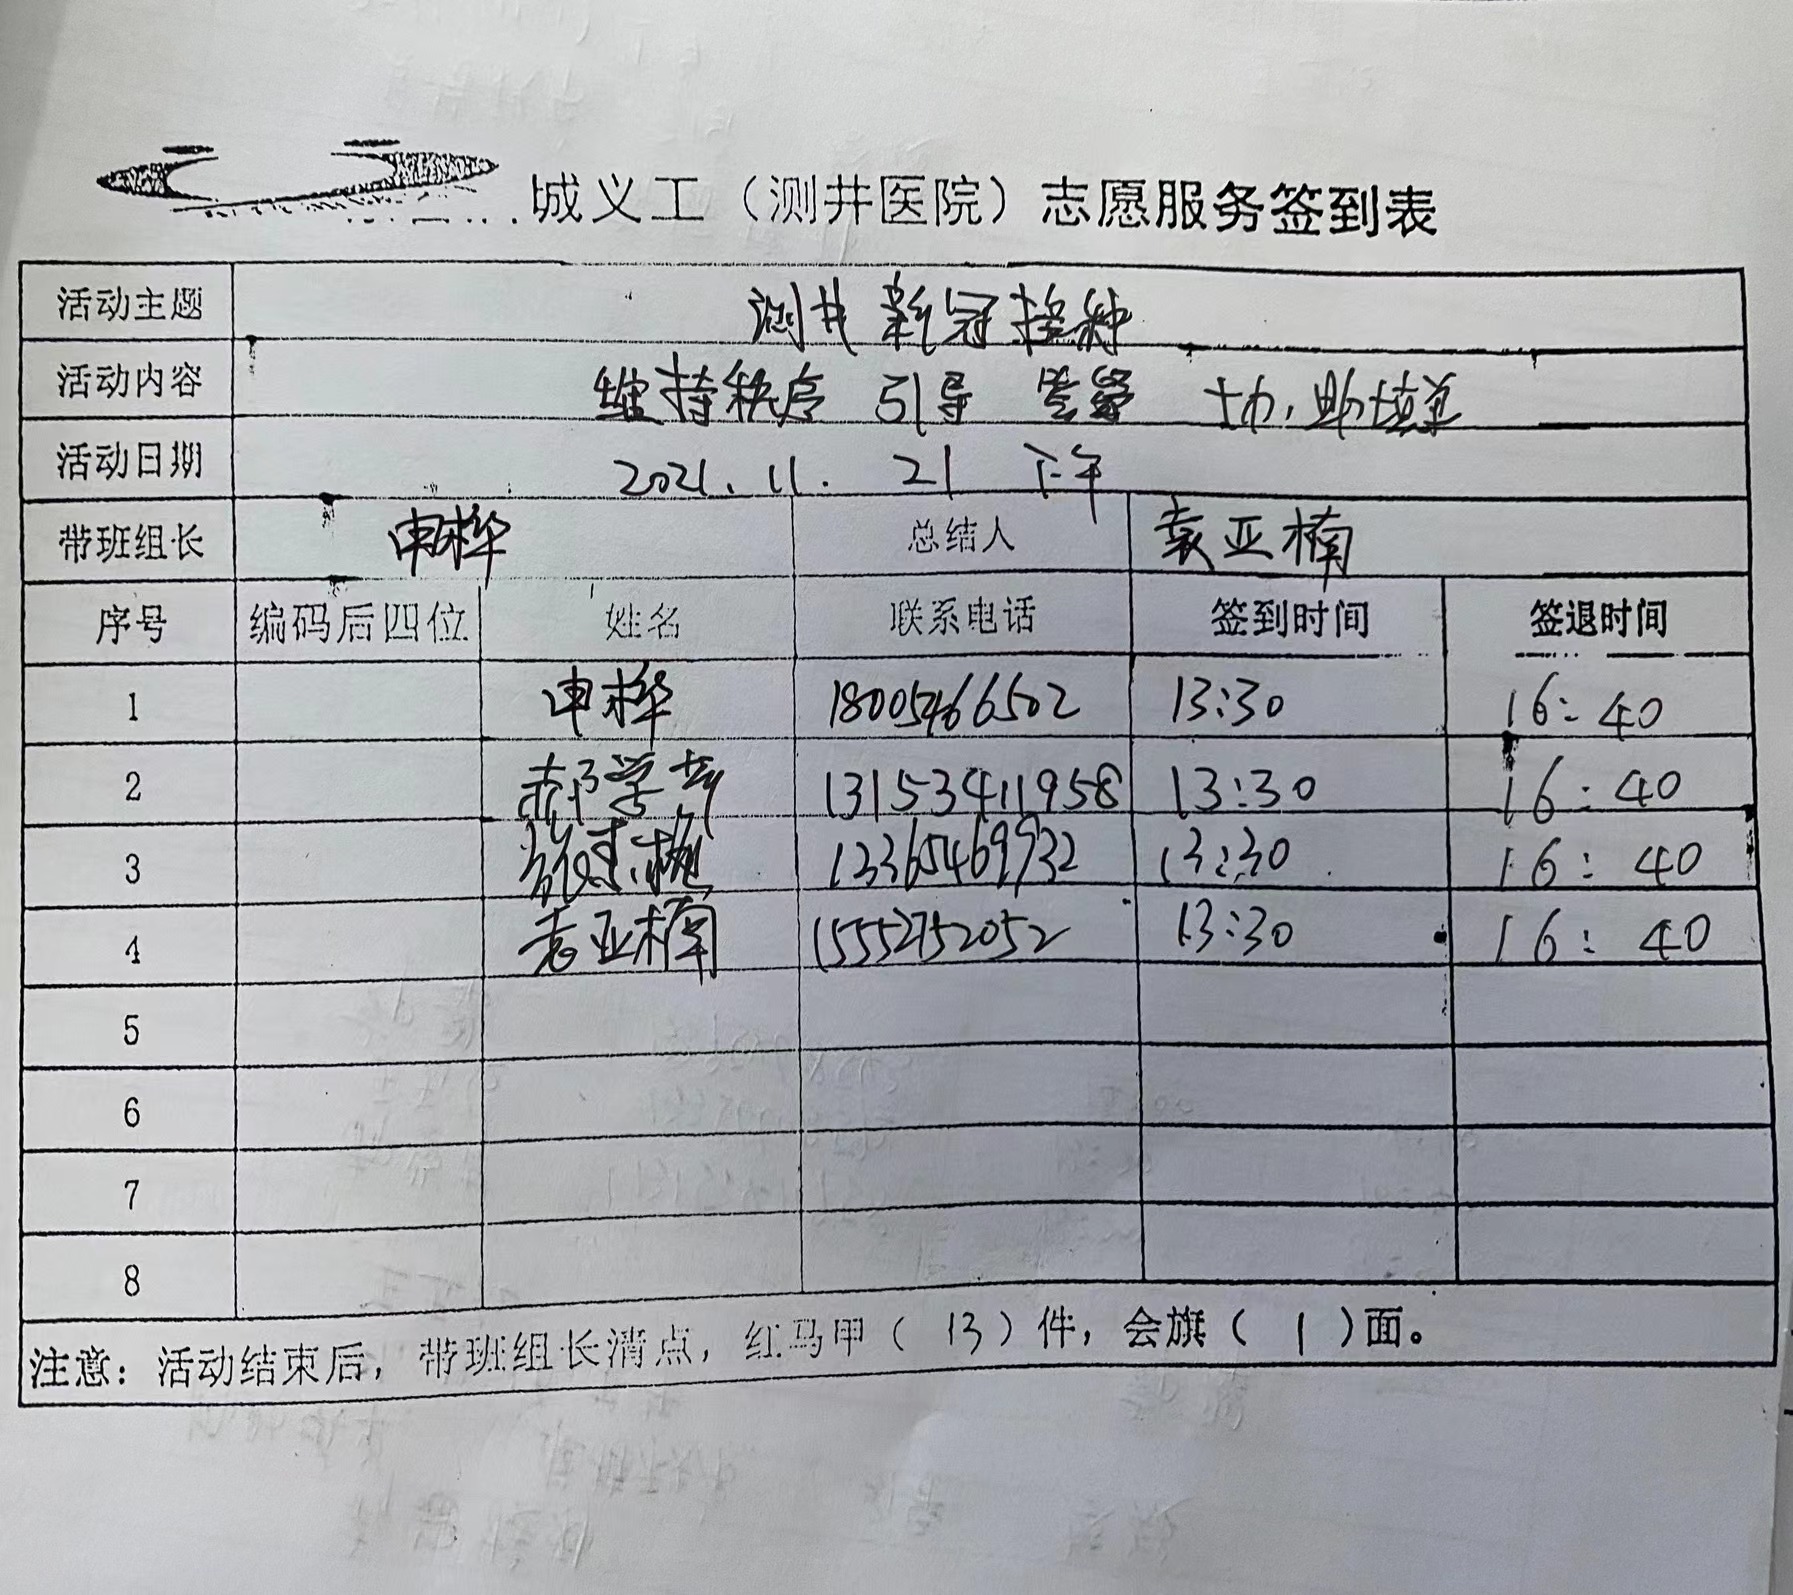 城义工（测井医院）志愿服务签到表
活动主题 测井新冠接种
活动内容 维持秩序 引导 答疑 协助填单
活动日期 2021.11.21 下午
带班组长 申桦 总结人 袁亚楠
序号 编码后四位 姓名 联系电话 签到时间 签退时间
1 申桦 18005466502 13:30 16:40
2 郝学芳 13153411958 13:30 16:40
3 13365469932 13:30 16:40
4 袁亚楠 15552752052 13:30 16:40
5
6
7
8
注意：活动结束后，带班组长清点，红马甲（13）件，会旗（1）面。